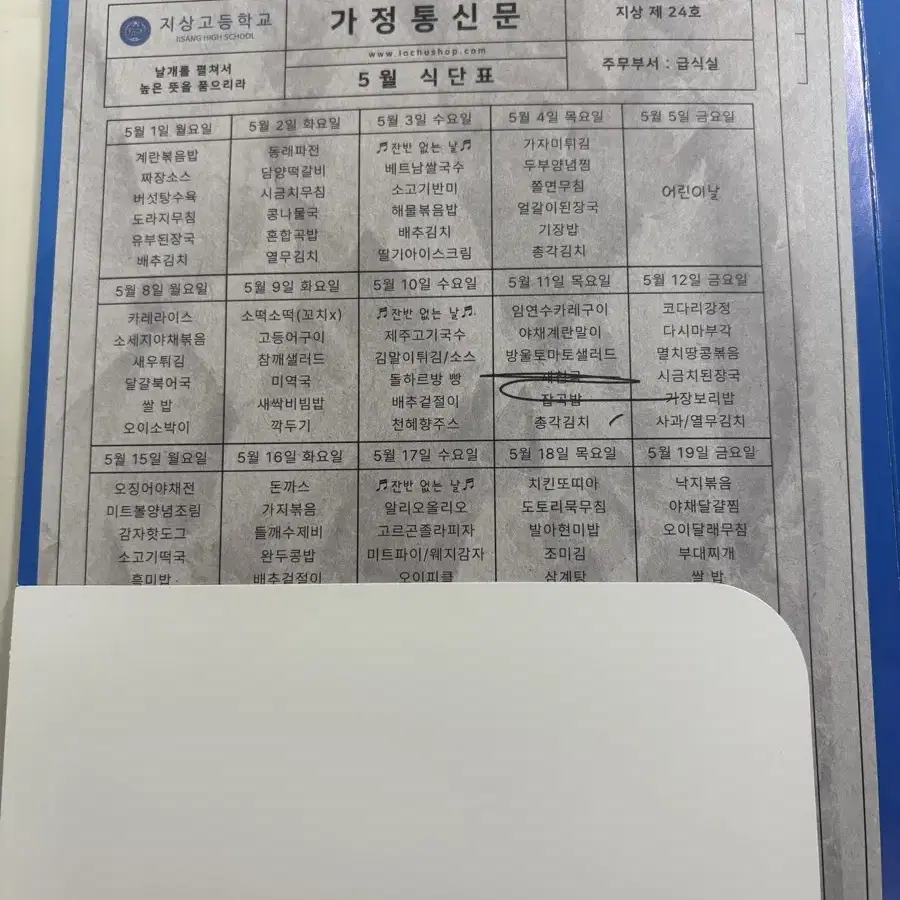 지상고등학교
JISANG HIGH SCHOOL
날개를 펼쳐서
높은 뜻을 품으리라
가정통신문
www.lochushop.com
5월 식단표
지상 제 24호
주무부서 : 급식실
5월 1일 월요일
계란볶음밥
짜장소스
버섯탕수육
도라지무침
유부된장국
배추김치
5월 2일 화요일
동래파전
담양떡갈비
시금치무침
콩나물국
혼합곡밥
열무김치
5월 3일 수요일
♬잔반 없는 날♬
베트남쌀국수
소고기반미
해물볶음밥
배추김치
딸기아이스크림
5월 4일 목요일
가자미튀김
두부양념찜
쫄면무침
얼갈이된장국
기장밥
총각김치
5월 5일 금요일
어린이날
5월 8일 월요일
카레라이스
소세지야채볶음
새우튀김
달걀북어국
쌀 밥
오이소박이
5월 9일 화요일
소떡소떡(꼬치x)
고등어구이
참깨샐러드
미역국
새싹비빔밥
깍두기
5월 10일 수요일
♬잔반 없는 날♬
제주고기국수
김말이튀김/소스
돌하르방 빵
배추겉절이
천혜향주스
5월 11일 목요일
임연수카레구이
야채계란말이
방울토마토샐러드
잡곡밥
총각김치
5월 12일 금요일
코다리강정
다시마부각
멸치땅콩볶음
시금치된장국
기장보리밥
사과/열무김치
5월 15일 월요일
오징어야채전
미트볼양념조림
감자핫도그
소고기떡국
흑미밥
5월 16일 화요일
돈까스
가지볶음
들깨수제비
완두콩밥
배추겉절이
5월 17일 수요일
♬잔반 없는 날♬
알리오올리오
고르곤졸라피자
미트파이/웨지감자
오이피클
5월 18일 목요일
치킨또띠아
도토리묵무침
발아현미밥
조미김
삼계탕
5월 19일 금요일
낙지볶음
야채달걀찜
오이달래무침
부대찌개
쌀 밥